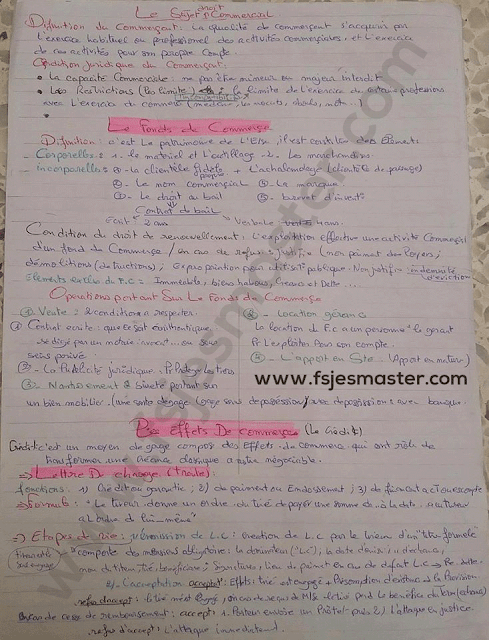 Le Sujet droit Commercial
Définition de Commerçant: La qualité de commerçant s'acquiert par
l'exercice habituel ou professionnel des activités commerciales, et l'exercice
de ces activités pour son propre Compte.
Condition Juridique du Commerçant:
• La capacité Commerciale: ne pas être mineur ou majeur Interdit
• Les Restrictions (les limites) la limite de l'exercice de certaines professions
Incompatibilité
avec l'exercice du commerce (médecin, avocats,
Le Fonds de Commerce
Définition: c'est Le patrimoine de L'Ese, il est constitué des éléments
Corporelles: 1- le matériel et L'outillage - 2- Les marchandises
incorporelles: ① - La clientèle fidèle + L'achalandage (clientèle de passage)
② - Le nom commercial ⑤ - La marque
③ - Le droit au bail ⑥ - brevet d'invest
Contrat de bail
Écrit 2 ans Verbale 4 ans
Condition du droit de renouvellement: L'exploitation effective une activité Commercial
d'un fond de Commerce / en cas de refus: justifié (non paiment des loyers,
démolitions (destructions), expropriation pour utilité publique. Non justifié indemnité
d'éviction
Eléments exclus du F.C = Immeubles, biens et Dette ...
Opérations portant Sur Le Fonds de Commerce
① Vente: 2 conditions à respecter ② - Location gérance
① Contrat écrit: que ce soit authentique La location de F.C à une personne le gérant
rédigé par un notaire ... ou sous Pr l'exploiter Pour son compte.
seing privé. ④ - L'apport en Sté (Apport en nature)
② - La Publicité juridique Pr Protéger les tiers
www.fsjesmaster.com
③ Nantissement: Sûreté portant sur
un bien mobilier (une sorte de gage (gage sans dépossession) avec dépossession: avec banque
Les Effets De commerce (Le Crédit)
Crédit: c'est un moyen de composé des Effets de commerce qui ont rôle de
transformer une créance classique à négociable.
⇒ Lettre De change (traite):
fonctions: 1) Crédit ou garantie; 2) de paiment ou Endossement; 3) de à L'escompte
⇒ Formule: "Le tireur donne un ordre au tiré de payer une somme de à la date au tireur
à L'ordre de lui-même"
⇒ Etapes de vie: émission de L.C: création de L.C par le biais d'un "titre formelle"
comporte des mentions obligatoires: la dénomination ("LC"), la date d'émission échéance,
nom du tiré, bénéficiaire, signature, lieu de paiment en cas de défaut L.C →
2/- L'acceptation accepté: Effets: tiré est engagé + Présomption d'existence de la Provision.
refus d'accept: le tiré n'est engagé,
En cas de cesse de remboursement: accept: 1- Porteur envoie un Protêt puis 2) L'attaque en justice.
refus d'accept: L'attaque immédiatement.